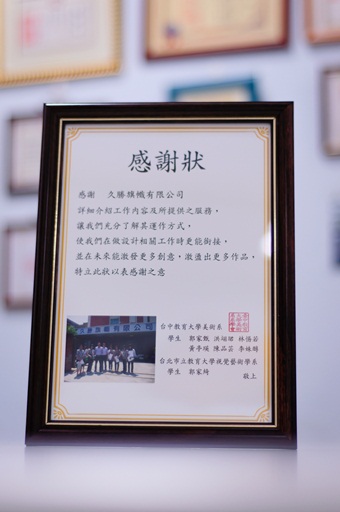 感謝狀
感謝 久勝旗幟有限公司
詳細介紹工作內容及所提供之服務，
讓我們充分了解其運作方式，
使我們在做設計相關工作時更能銜接，
並在未來能激發更多創意，激盪出更多作品，
特立此狀以表感謝之意
台中教育大學美術系
學生 郭家甄 洪
台北市立教育大學視覺藝術學系
學生 郭家綺
敬上